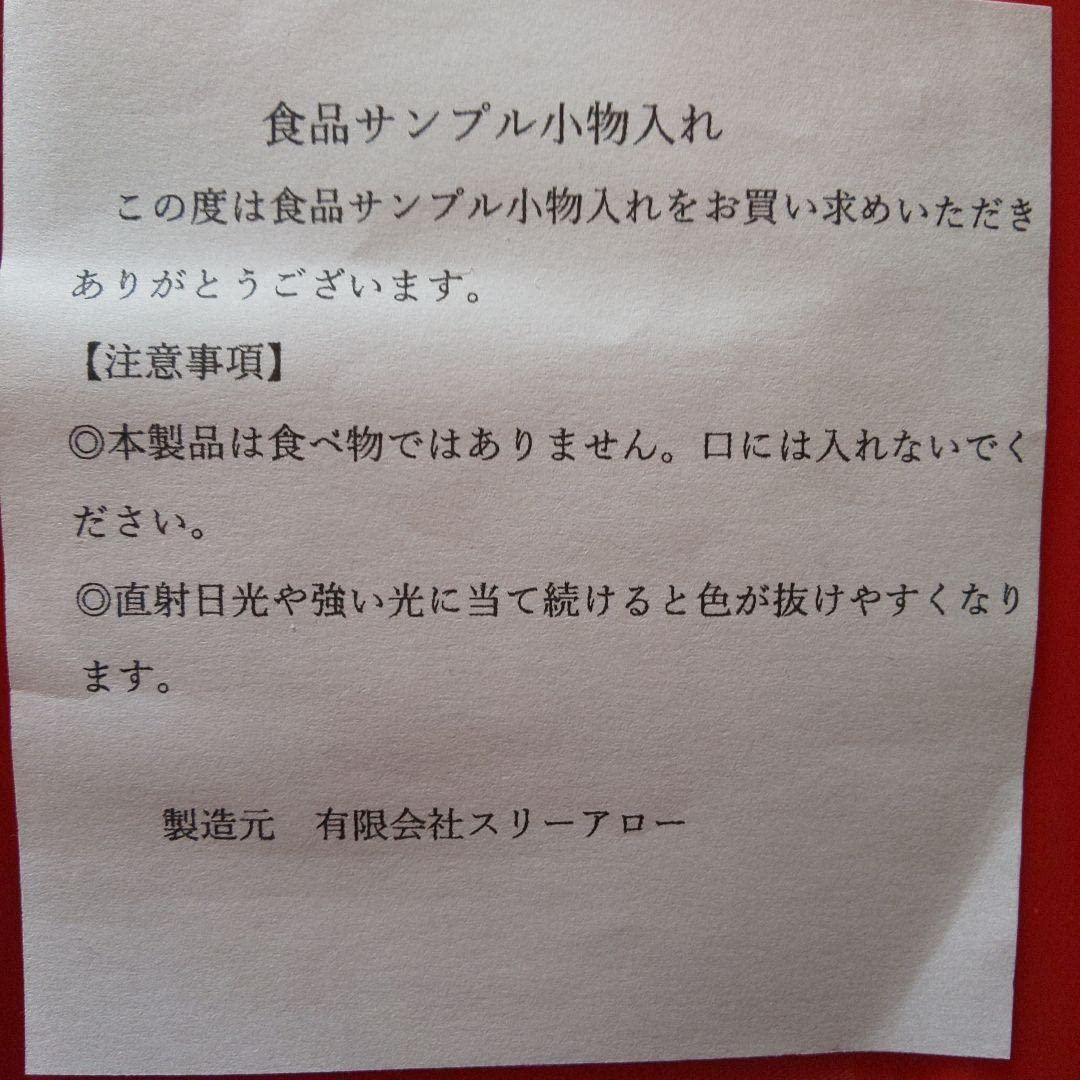 食品サンプル小物入れ
この度は食品サンプル小物入れをお買い求めいただき
ありがとうございます。
【注意事項】
◎本製品は食べ物ではありません。口には入れないでく
ださい。
◎直射日光や強い光に当て続けると色が抜けやすくなり
ます。
製造元　有限会社スリーアロー